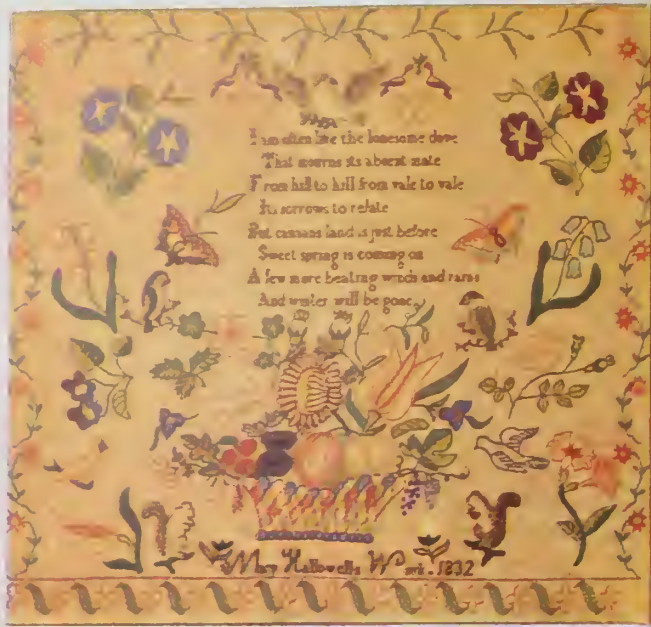 Hope
I am often like the lonesome dove
That mourns its absent mate
From hill to hill from vale to vale
Its sorrows to relate
But canaans land is just before
Sweet spring is coming on
A few more beating winds and rains
And winter will be gone
Mary Hallowells Work. 1832